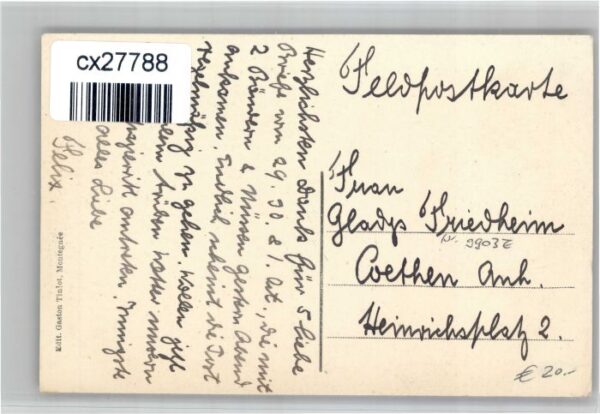 cx27788
Feldpostkarte
Herzlichsten Dank für 5 liebe
Briefe vom 29. 30. & 1. ct., die mit
2 Bändern & Nüssen gestern Abend
ankamen. Endlich scheint die Post
regelmäßig zu gehen. Wollen
Innigste
alles Liebe
Felix.
Frau
Gladys Friedheim
Nr. 9903E
Coethen Anh.
Heinrichsplatz 2.
€ 20.-
Edit. Gaston Tinlot, Montegnée